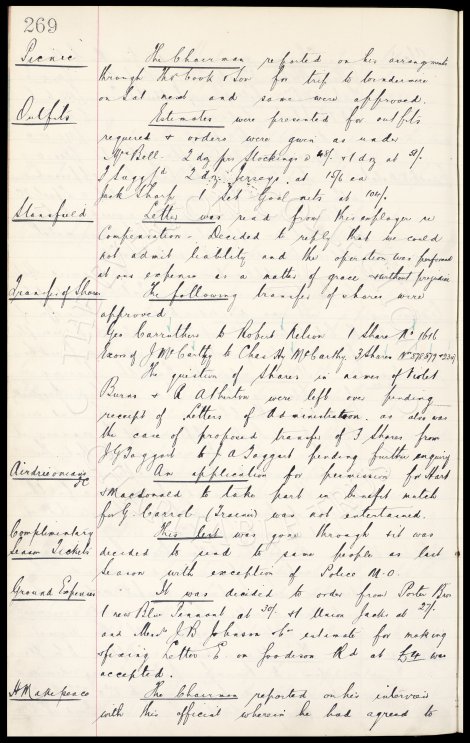 269
Picnic
The Chairman reported on his arrangements
through Ths Cook & Son for trip to Windermere
on Sat next and same were approved.
Outfits
Estimates were presented for outfits
required & orders were given as under
Mrs Bell. 2 doz prs Stockings @ & 1 doz at
J Sugg Ld 2 doz Jerseys at 15/6 ea
Jack Sharp 1 Set Goal nets at
Stansfield
Letter was read from this employer re
Compensation - Decided to reply that we could
not admit liability and the operation was performed
at our expense as a matter of grace & without prejudice
Transfer of Shares
The following transfer of shares were
approved
Geo Carruthers to Robert Nelson 1 Share No 1616
Exors of J McCarthy to Chas Hy McCarthy. 3 Shares
The question of Shares in names of Violet
Burns & A Atherton were left over pending
receipt of Letters of Administration as also was
the case of proposed transfer of 3 Shares from
J G Taggart to J A Taggart pending further enquiry
Airdrieonians FC
An application for permission for Hart
& Macdonald to take part in benefit match
for G. Carrol (Trainer) was not entertained.
Complimentary
Season Tickets
This list was gone through & it was
decided to send to same people as last
Season with exception of Police M.O.
Ground Expenses
It was decided to order from Porter Bros
1 new Blue Pennant at 30/- & 1 Union Jack at 27/-
and Messrs J B Johnson Co estimate for making
& fixing Letter E on Goodison Rd at £4 was
accepted.
H Makepeace
The Chairman reported on his interview
with this official wherein he had agreed to